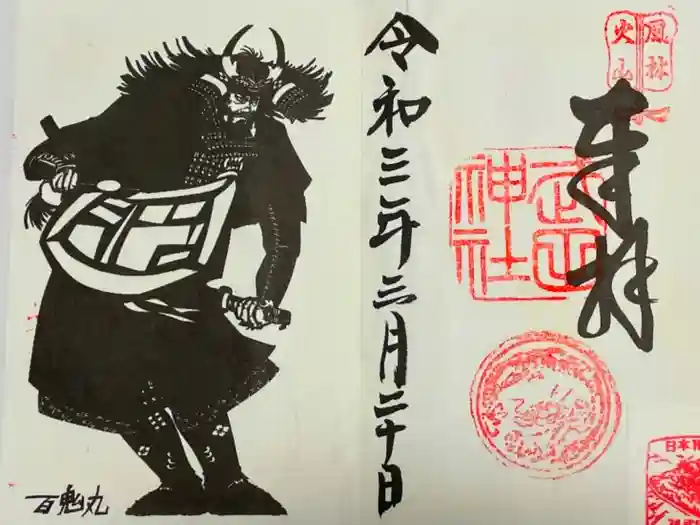 風林
火山
奉拝
武田
神社
日本
令和三年三月二十日
百鬼丸